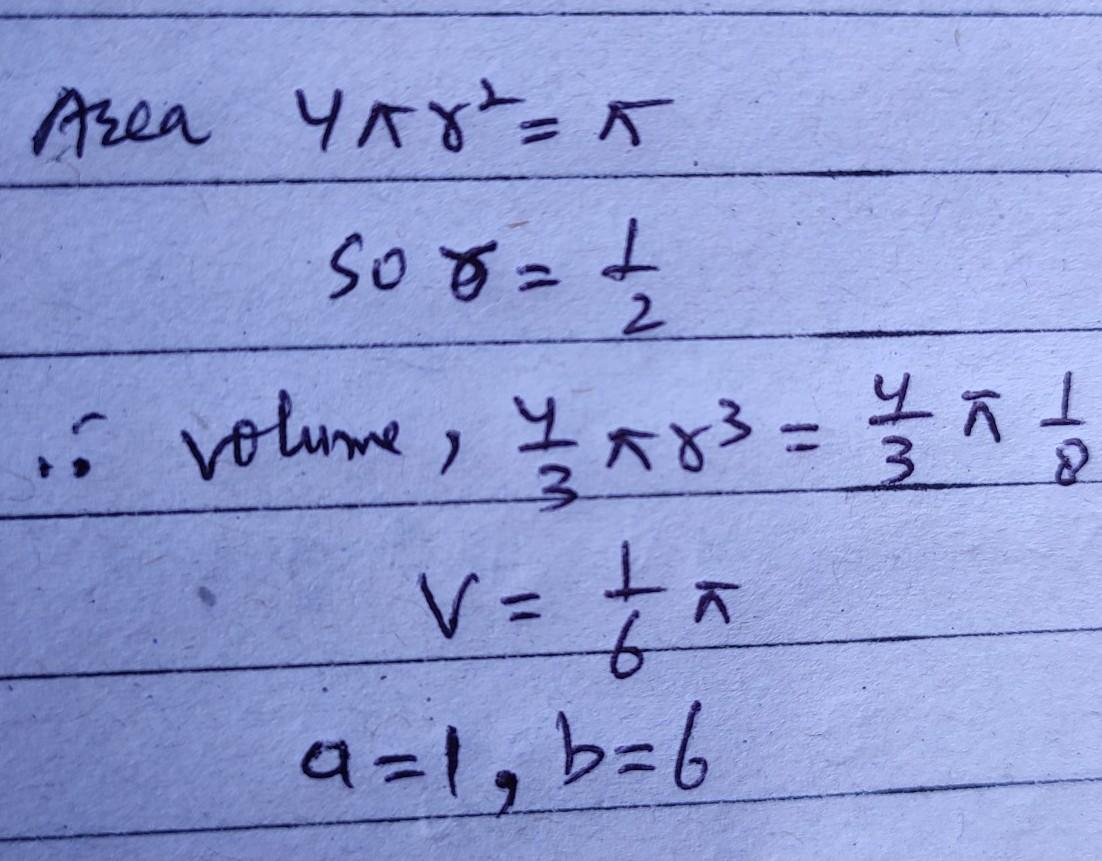 Area 4πr² = π
so r = 1/2
∴ volume, 4/3 πr³ = 4/3 π 1/8
V = 1/6 π
a=1, b=6